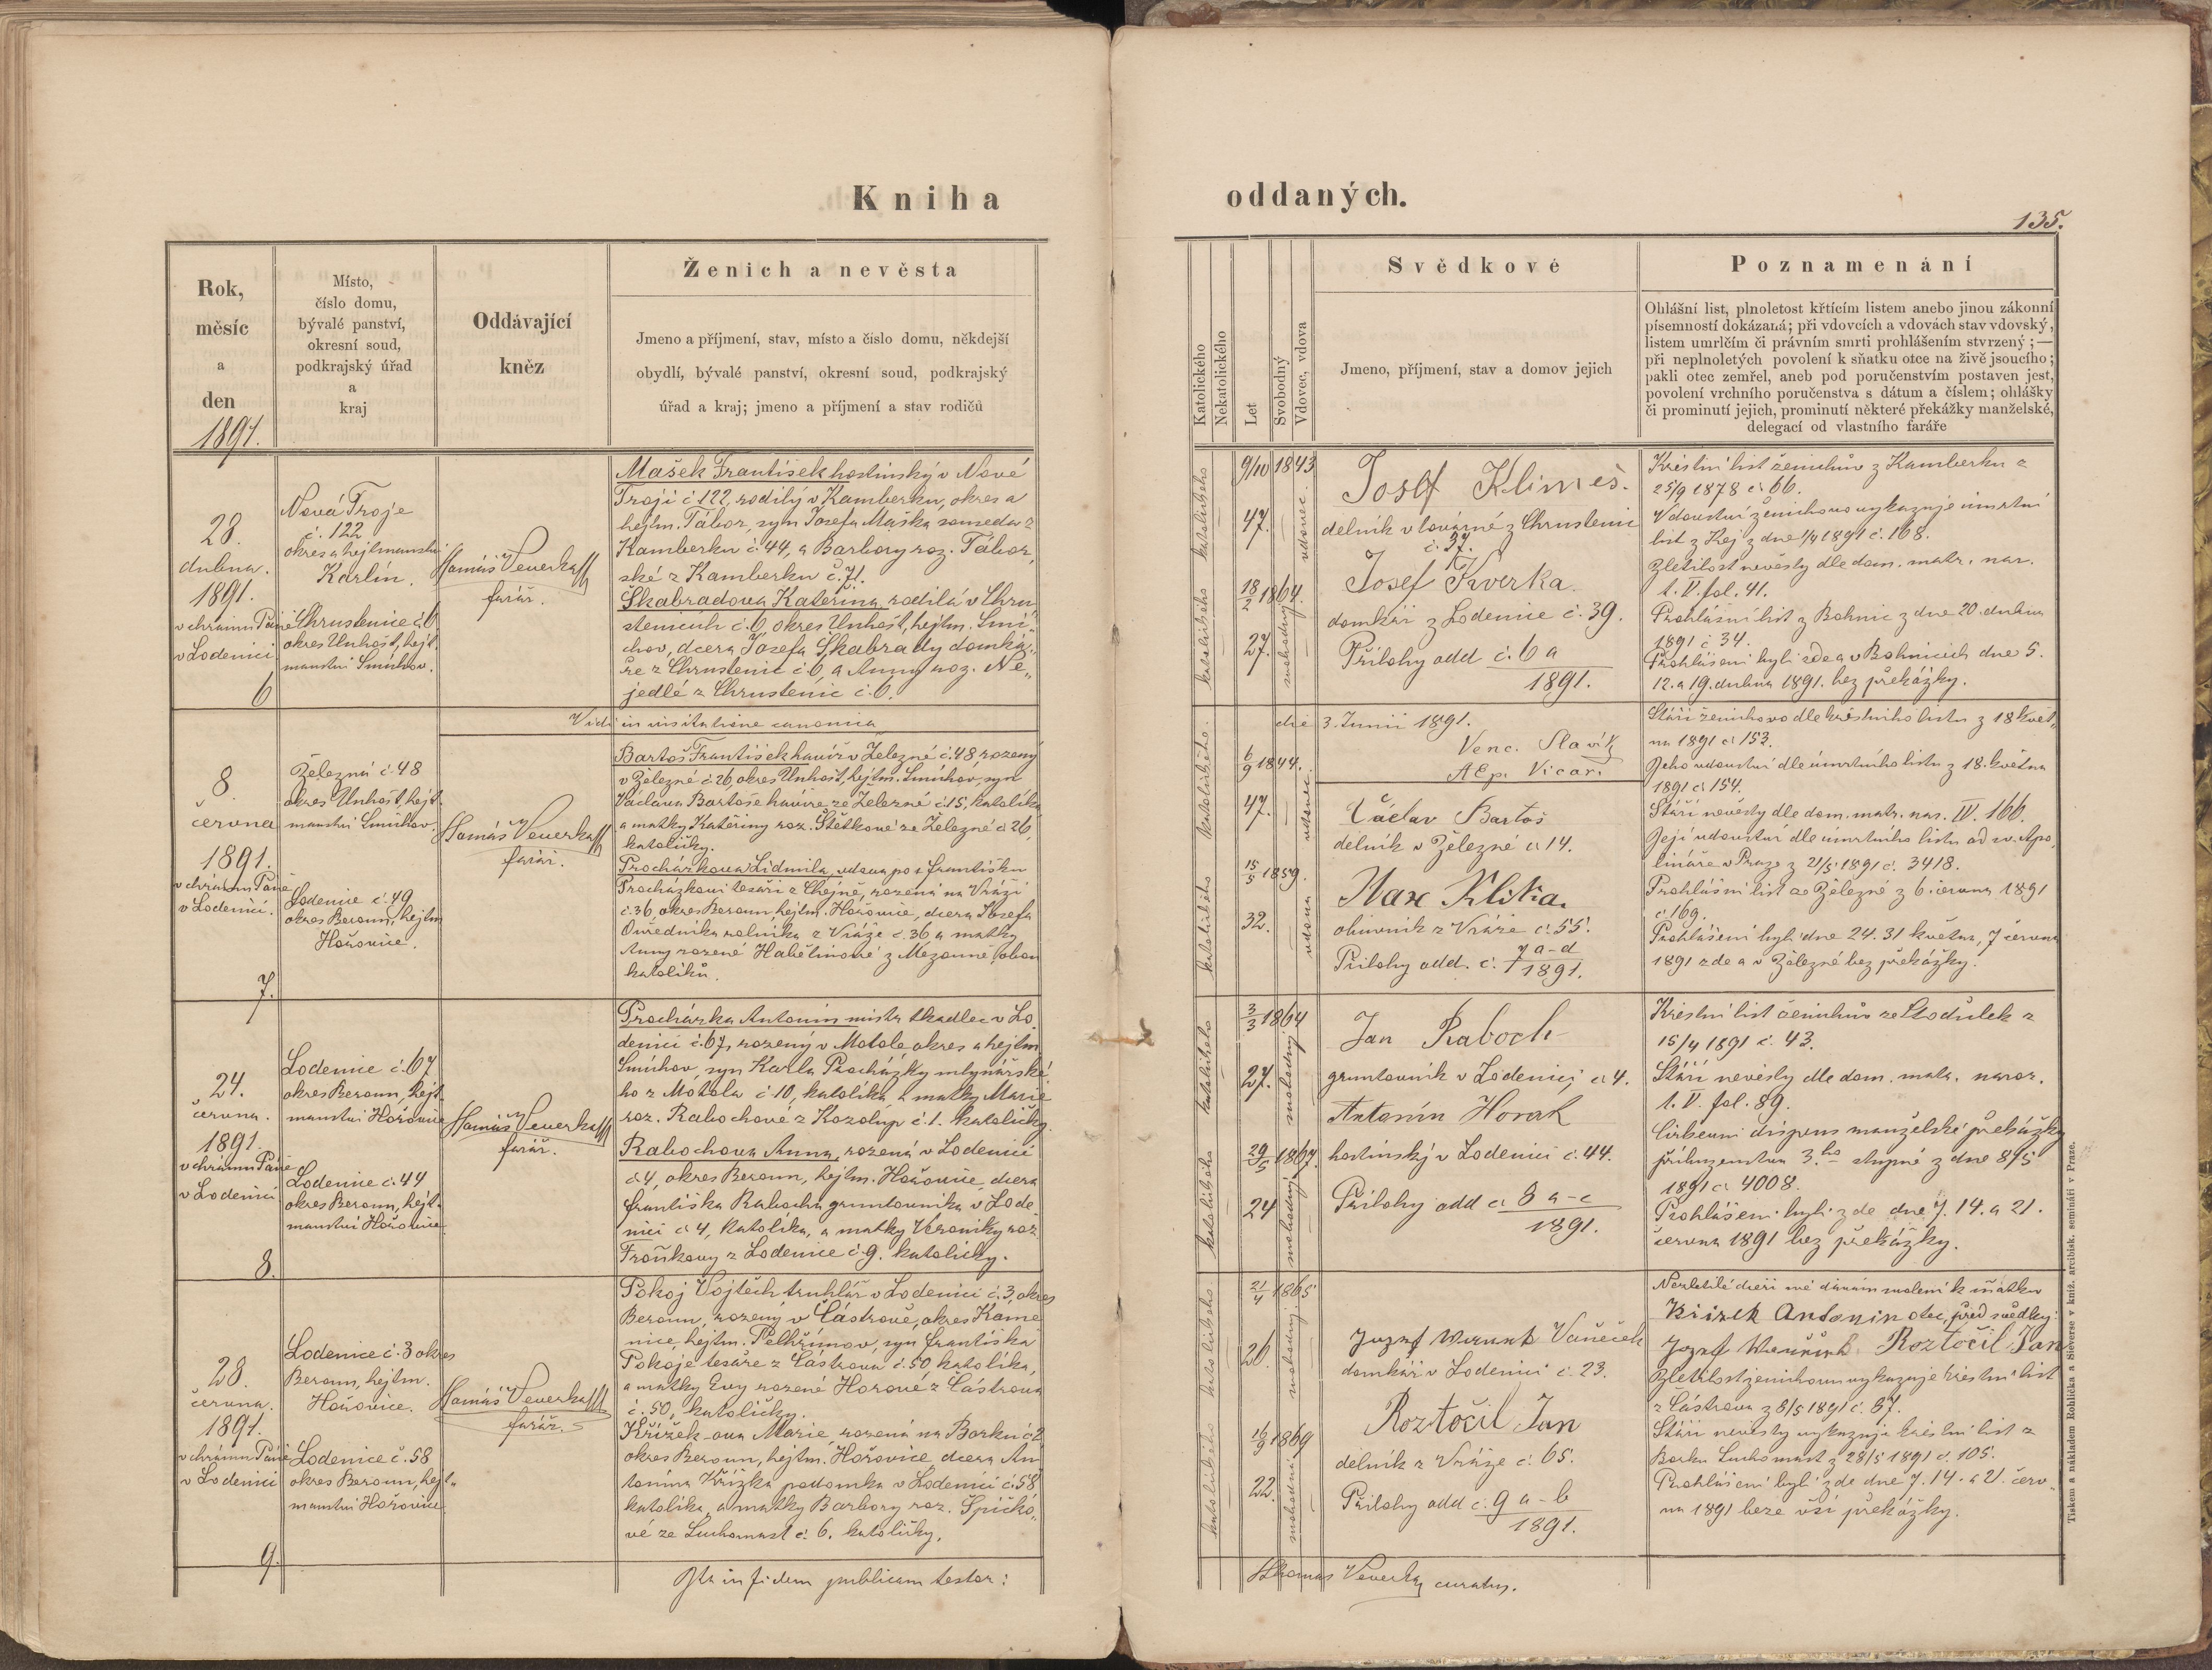 Kniha
oddaných.
135.
Rok,
měsíc
a
den
1891.
Místo,
číslo domu,
bývalé panství,
okresní soud,
podkrajský úřad
a
kraj
Oddávající
kněz
Ženich a nevěsta
Jmeno a příjmení, stav, místo a číslo domu, někdejší
obydlí, bývalé panství, okresní soud, podkrajský
úřad a kraj; jmeno a příjmení a stav rodičů
Katolického
Nekatolického
Let
Svobodný
Vdovec, vdova
Svědkové
Jmeno, příjmení, stav a domov jejich
Poznamenání
Ohlášní list, plnoletost křtícím listem anebo jinou zákonní
písemností dokázaná; při vdovcích a vdovách stav vdovský,
listem umrlčím či právním smrti prohlášením stvrzený; —
při neplnoletých povolení k sňatku otce na živě jsoucího;
pakli otec zemřel, aneb pod poručenstvím postaven jest,
povolení vrchního poručenstva s dátum a číslem; ohlášky
či prominutí jejich, prominutí některé překážky manželské,
delegací od vlastního faráře
28.
dubna.
1891.
v chrámu Páně
v Lodenici
6
Nová Troje
č. 122
okres a hejtmanství
Karlín.
Chrustenice č. 6
okres Unhošt, hejt-
manství Smíchov.
Tomáš Veverka
farář.
Mašek František hostinský v Nové
Troji č 122, rodilý v Kamberku, okres a
hejtm. Tábor, syn Josefa Maška souseda z
Kamberku č. 44, a Barbory roz. Tábor
ské z Kamberku č. 71.
Škabradova Kateřina, rodilá v Chru
stenicích č. 6, okres Unhošt, hejtm. Smí
chov, dcera Josefa Škabrady domká
ře z Chrustenic č 6, a Anny roz. Ne„
jedlé z Chrustenic č. 6.
katolického
9/10 1843
47.
vdovec.
katolického
18/2 1864.
27.
svobodný
Josef Klimeš.
dělník v továrně z Chrustenic
č. 37.
Josef Kverka.
domkář z Lodenice č. 39.
Přílohy odd č. 6 a
1891.
Křestní list ženichův z Kamberku z
25/9 1878 č. 66.
Vdovství ženichovo vykazuje úmrtní
list z Kej z dne 1/4 1891 č. 168.
Zletilost nevěsty dle dom. matr. nar.
t. V. fol. 41.
Prohlášní list z Bohnic z dne 20. dubna
1891 č 34.
Prohlášení byli zde a v Bohnicích dne 5.
12. a 19. dubna 1891. bez překážky.
Vidi in visitatione canonica
die 3. Junii 1891.
Venc. Slavík
AEp. Vicar.
8.
června
1891.
v chrámu Páně
v Lodenici.
7.
Železná č. 48
okres Unhošt, hejt-
manství Smíchov.
Lodenice č. 49
okres Beroun, hejtm
Hořovice.
Tomáš Veverka
farář.
Bartoš František havíř v Železné č. 48, rozený
v Železné č. 26, okres Unhošt, hejtm. Smíchov, syn
Václava Bartoše havíře ze Železné č 15, katolíka
a matky Kateřiny roz. Štětkové ze Železné č 26,
katoličky.
Procházkova Lidmila, vdova po † Františku
Procházkovi tesaři z Chejně, rozená na Vráži
č. 36, okres Beroun, hejtm. Hořovice, dcera Josefa
Ouředníka rolníka z Vráže č. 36 a matky
Anny rozené Habětínové z Mezouně, obou
katolíků.
katolického.
6/9 1844.
47.
vdovec
katolického
15/5 1859.
32.
vdova
Václav Bartoš
dělník v Železné č. 14.
Max Klika.
obuvník z Vráže č. 55.
Přílohy odd. č. 7 a-d
1891.
Stáří ženichovo dle křestního listu z 18 květ„
na 1891 č 153.
Jeho vdovství dle úmrtního listu z 18. května
1891 č. 154.
Stáří nevěsty dle dom. matr. nar. IV. 166.
Její vdovství dle úmrtního listu od sv. Apo„
lináře v Praze z 2/5 1891 č. 3418.
Prohlášní list ze Železné z 6. června 1891
č 169.
Prohlášení byli dne 24. 31 května, 7 června
1891 zde a v Železné bez překážky.
24.
června.
1891.
v chrámu Páně
v Lodenici
8.
Lodenice č. 67
okres Beroun, hejt-
manství Hořovice
Lodenice č. 44
okres Beroun, hejt-
manství Hořovice
Tomáš Veverka
farář.
Procházka Antonín mistr tkadlec v Lo
denici č. 67, rozený v Motole okres a hejtm
Smíchov, syn Karla Procházky mlynářské
ho z Motola č 10, katolíka a matky Marie
roz. Rabochové z Kozolup č. 1. katoličky.
Rabochova Anna, rozená v Lodenici
č. 4, okres Beroun, hejtm. Hořovice, dcera
Františka Rabocha gruntovníka v Lode
nici č 4, katolíka, a matky Veroniky roz
Froňkovy z Lodenice č. 9. katoličky.
katolického
3/3 1864
27.
svobodný
katolického
29/5 1867.
24
svobodný.
Jan Raboch
gruntovník v Lodenici č 4.
Antonín Horak
hostinský v Lodenici č. 44.
Přílohy odd č. 8 a-c
1891.
Křestní list ženichův ze Stodůlek z
15/4 1891 č. 43.
Stáří nevěsty dle dom. matr. naroz.
t. V. fol. 89.
Církevní dispens manželské překážky
příbuzenstva 3.ho stupně z dne 8/5
1891 č. 4008.
Prohlášeni byli zde dne 7. 14. a 21.
června 1891 bez překážky.
28.
června.
1891.
v chrámu Páně
v Lodenici
9.
Lodenice č. 3 okres
Beroun, hejtm.
Hořovice.
Lodenice č. 58
okres Beroun, hejt-
manství Hořovice
Tomáš Veverka
farář.
Pokoj Vojtěch truhlář v Lodenici č. 3, okres
Beroun, rozený v Částrově, okres Kame
nice, hejtm. Pelhřimov, syn Františka
Pokoje tesaře z Částrova č. 50 katolíka,
a matky Evy rozené Horové z Částrova
č. 50, katoličky.
Křížek-ova Marie, rozená na Borku č 2
okres Beroun, hejtm. Hořovice dcera An
tonína Křížka podomka v Lodenici č. 58
katolíka, a matky Barbory roz. Špičko„
vé ze Suchomast č. 6. katoličky.
katolického.
21/4 1865
26.
svobodný.
katolického
16/9 1869
22.
svobodná
Jozef Vaněček
domkář v Lodenici č. 23.
Roztočil Jan
dělník z Vráže č. 65.
Přílohy odd č. 9 a-b
1891.
Nezletilé dceři mé dávám svolení k sňatku
Křízek Andonin otec, před svědky:
Jozef Roztočil Jan
Zletilost ženichovu vykazuje křestní list
z Částrova z 8/5 1891 č. 87.
Stáří nevěsty vykazuje křestní list z
Borku Suchomast z 28/5 1891 č. 105.
Prohlášeni byli zde dne 7. 14. a 21. červ„
na 1891 beze vší překážky.
Ita in fidem publicam testor:
Thomas Veverka curatus.
Tiskem a nákladem Rohlíčka a Sieverse v kníž. arcibisk. semináři v Praze.